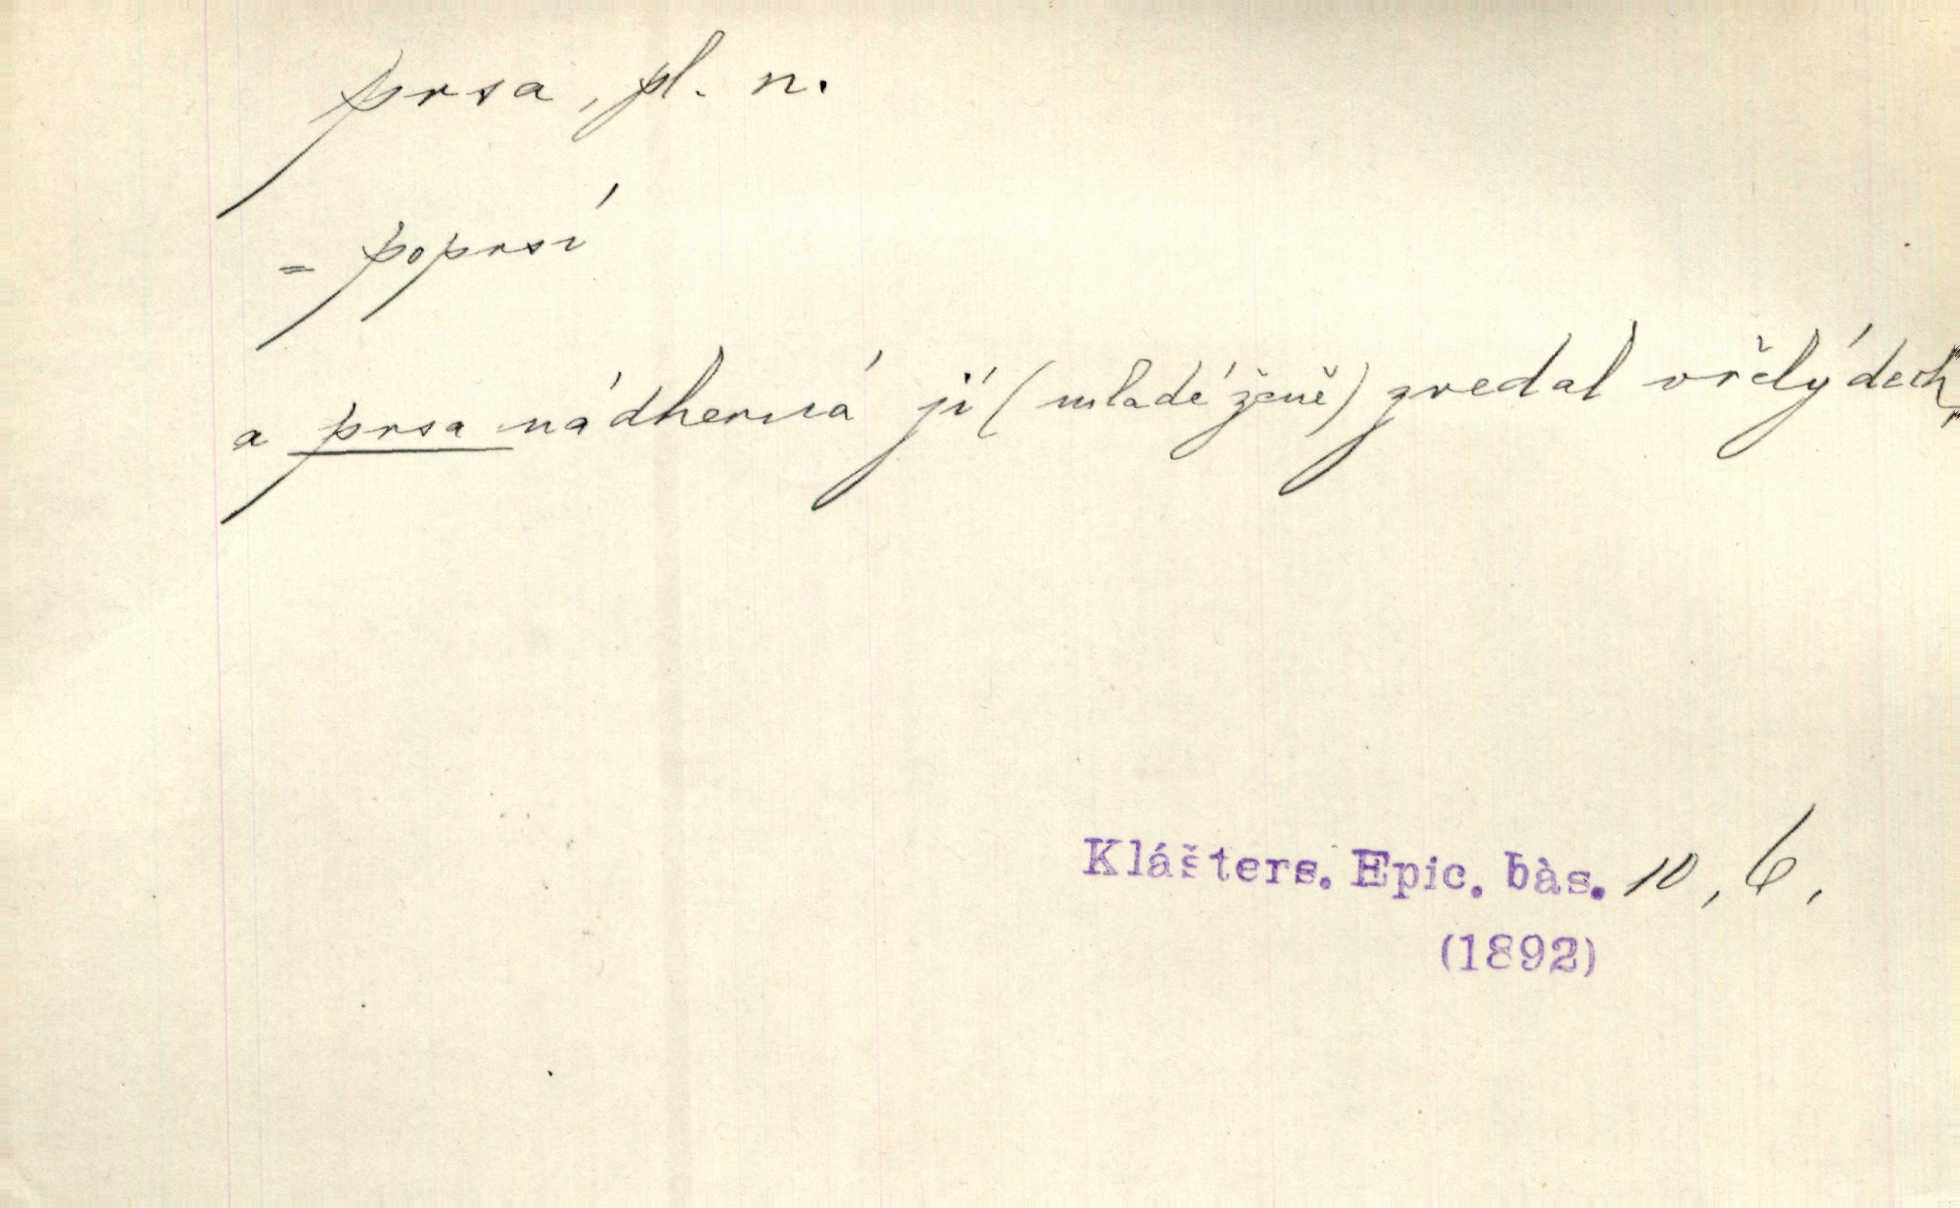 prsa, pl. n.
= poprsí
a prsa nádherná jí (mladé ženě) zvedal vřelý dech,
Klášters. Epic. bàs. 10, 6,
(1892)